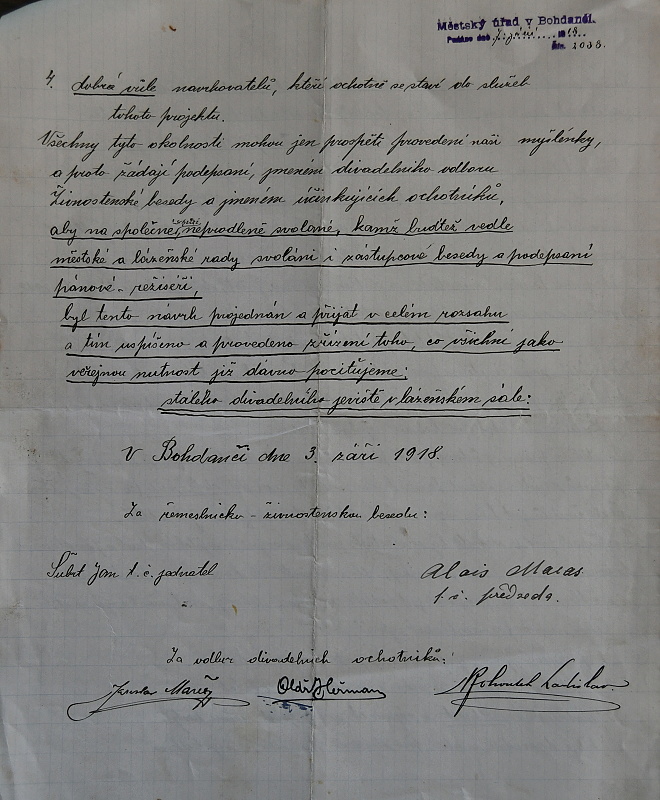 Městský úřad v Bohdanči.
Podáno dne 7. září 1918.
Čís. 2038.
4. dobrá vůle navrhovatelů, kteří ochotně se staví do služeb
tohoto projektu.
Všechny tyto okolnosti mohou jen prospěti provedení naší myšlénky,
a proto žádají podepsaní, jménem divadelního odboru
Živnostenské besedy a jménem účinkujících ochotníků,
aby na společné, neprodleně svolané, kamž buďtež vedle
městské a lázeňské rady svoláni i zástupcové besedy a podepsaní
pánové-režiséři,
byl tento návrh projednán a přijat v celém rozsahu
a tím uspíšeno a provedeno zřízení toho, co všichni jako
veřejnou nutnost již dávno pociťujeme:
stálého divadelního jeviště v lázeňském sále:
V Bohdanči dne 3. září 1918.
Za řemeslnicko-živnostenskou besedu:
Šubrt Jan t. č. jednatel
Alois Maras
t. č. předseda.
Za odbor divadelních ochotníků:
Jaroslav
Ladislav